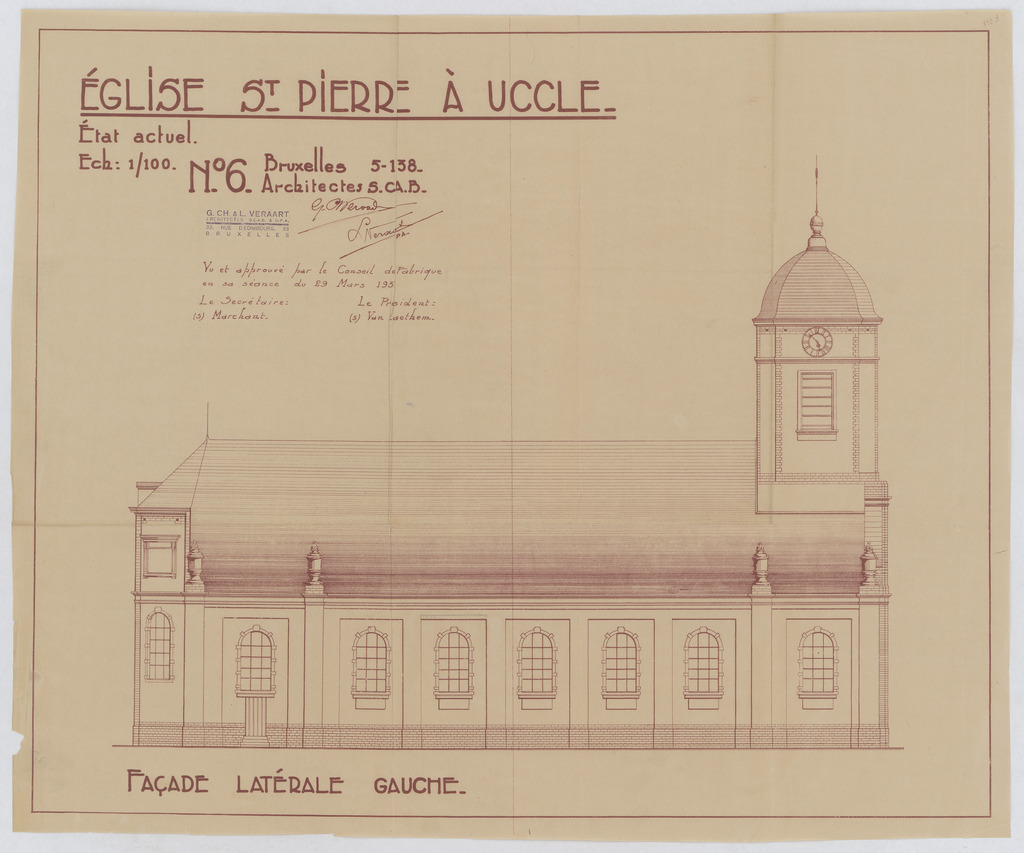 ÉGLISE ST PIERRE À UCCLE.
État actuel.
Ech: 1/100.
No6.
Bruxelles 5-138.
Architectes S.CA.B.
G. CH. & L. VERAART
BRUXELLES
Vu et approuvé par le Conseil de Fabrique
en sa séance du 29 Mars 193
Le Secrétaire: Le Président:
(s) Marchant. (s) Van Laethem.
FAÇADE LATÉRALE GAUCHE.